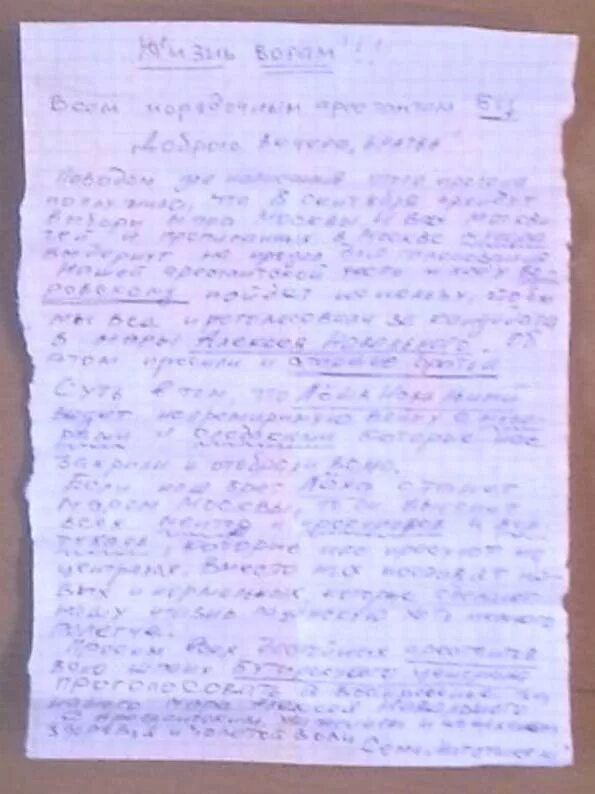 Жизнь ворам!!!
Всем порядочным арестантам БЦ
Доброго вечера, братва
Поводом для написания этого прогона
послужило, что 8 сентября пройдут
выборы мэра Москвы и всех москви
чей и прописанных в Москве
выдернут на продол для голосования
Нашей арестантской части и ходу Во
ровскому пойдет на пользу, чтобы
мы все проголосовали за кандидата
в мэры Алексея Навального. Об
этом просили и
Суть в том, что Лёха Навальный
ведёт непримиримую войну с
и которые нас
закрыли и отобрали волю.
Если наш Лёха станет
мэром Москвы, то он выгонит
всех ментов и прокуроров и
которые нас прессуют на
централе. Вместо них поставят но
вых и нормальных, которые сделают
нашу жизнь хоть немного
полегче.
Просим всех достойных арестантов
Бутырского централа
проголосовать в воскресенье за
нашего мэра Алексея Навального
С Арестантским уважением и
здоровья и золотой воли